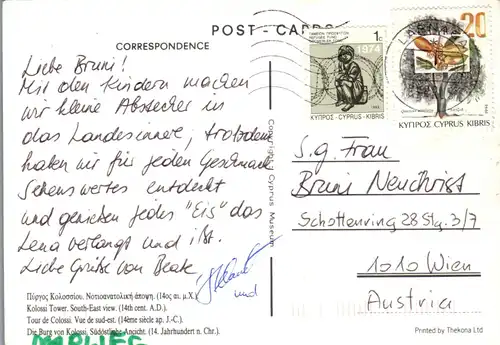 POST - CARD
CORRESPONDENCE
Liebe Bruni!
Mit den Kindern machen
wir kleine Abstecher in
das Landesinnere, trotzdem
haben wir für jeden Geschmack
Sehenswertes entdeckt
und genießen jedes "Eis" das
Lena verlangt und ißt.
Liebe Grüße von Beate
und
Πύργος Κολοσσίου. Νοτιοανατολική άποψη. (14ος αι. μ.Χ.)
Kolossi Tower. South-East view. (14th cent. A.D.)
Tour de Colossi. Vue de sud-est. (14ème siècle ap. J.-C.).
Die Burg von Kolossi. Südöstliche Ansicht. (14. Jahrhundert n. Chr.).
Copyright: Cyprus Museum
1c
1974
ΚΥΠΡΟΣ·CYPRUS·KIBRIS
20
ΚΥΠΡΟΣ CYPRUS KIBRIS
S.g. Frau
Bruni Neuchrist
Schottenring 28 Stg. 3/7
1010 Wien
Austria
Printed by Thekona Ltd